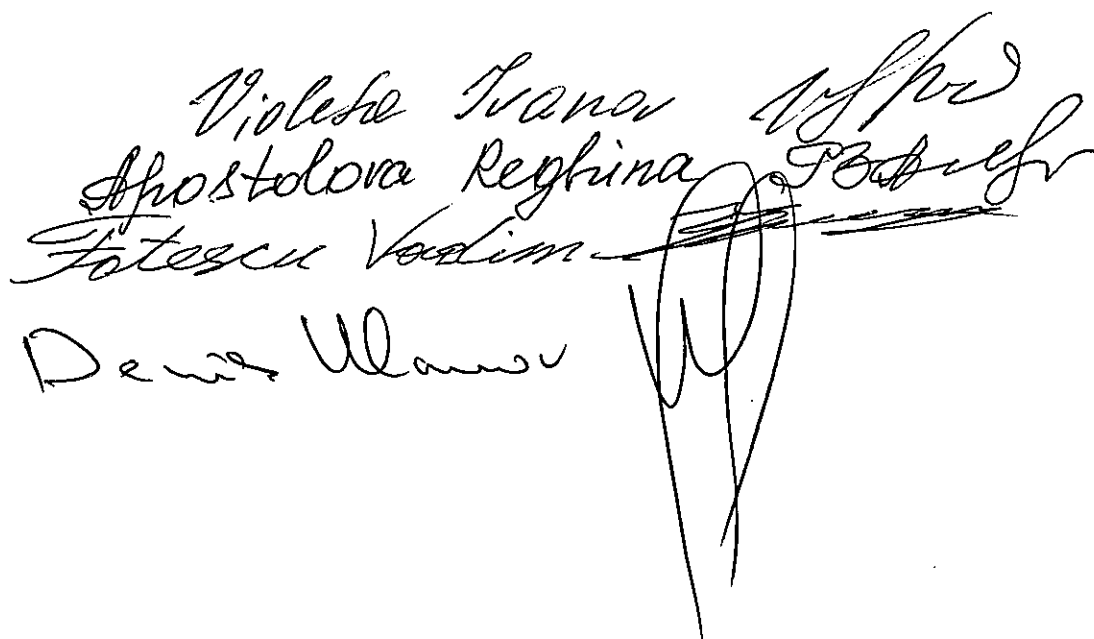 Violeta Ivanov
Apostolova Reghina
Fotescu Vadim
Denis Ulanov